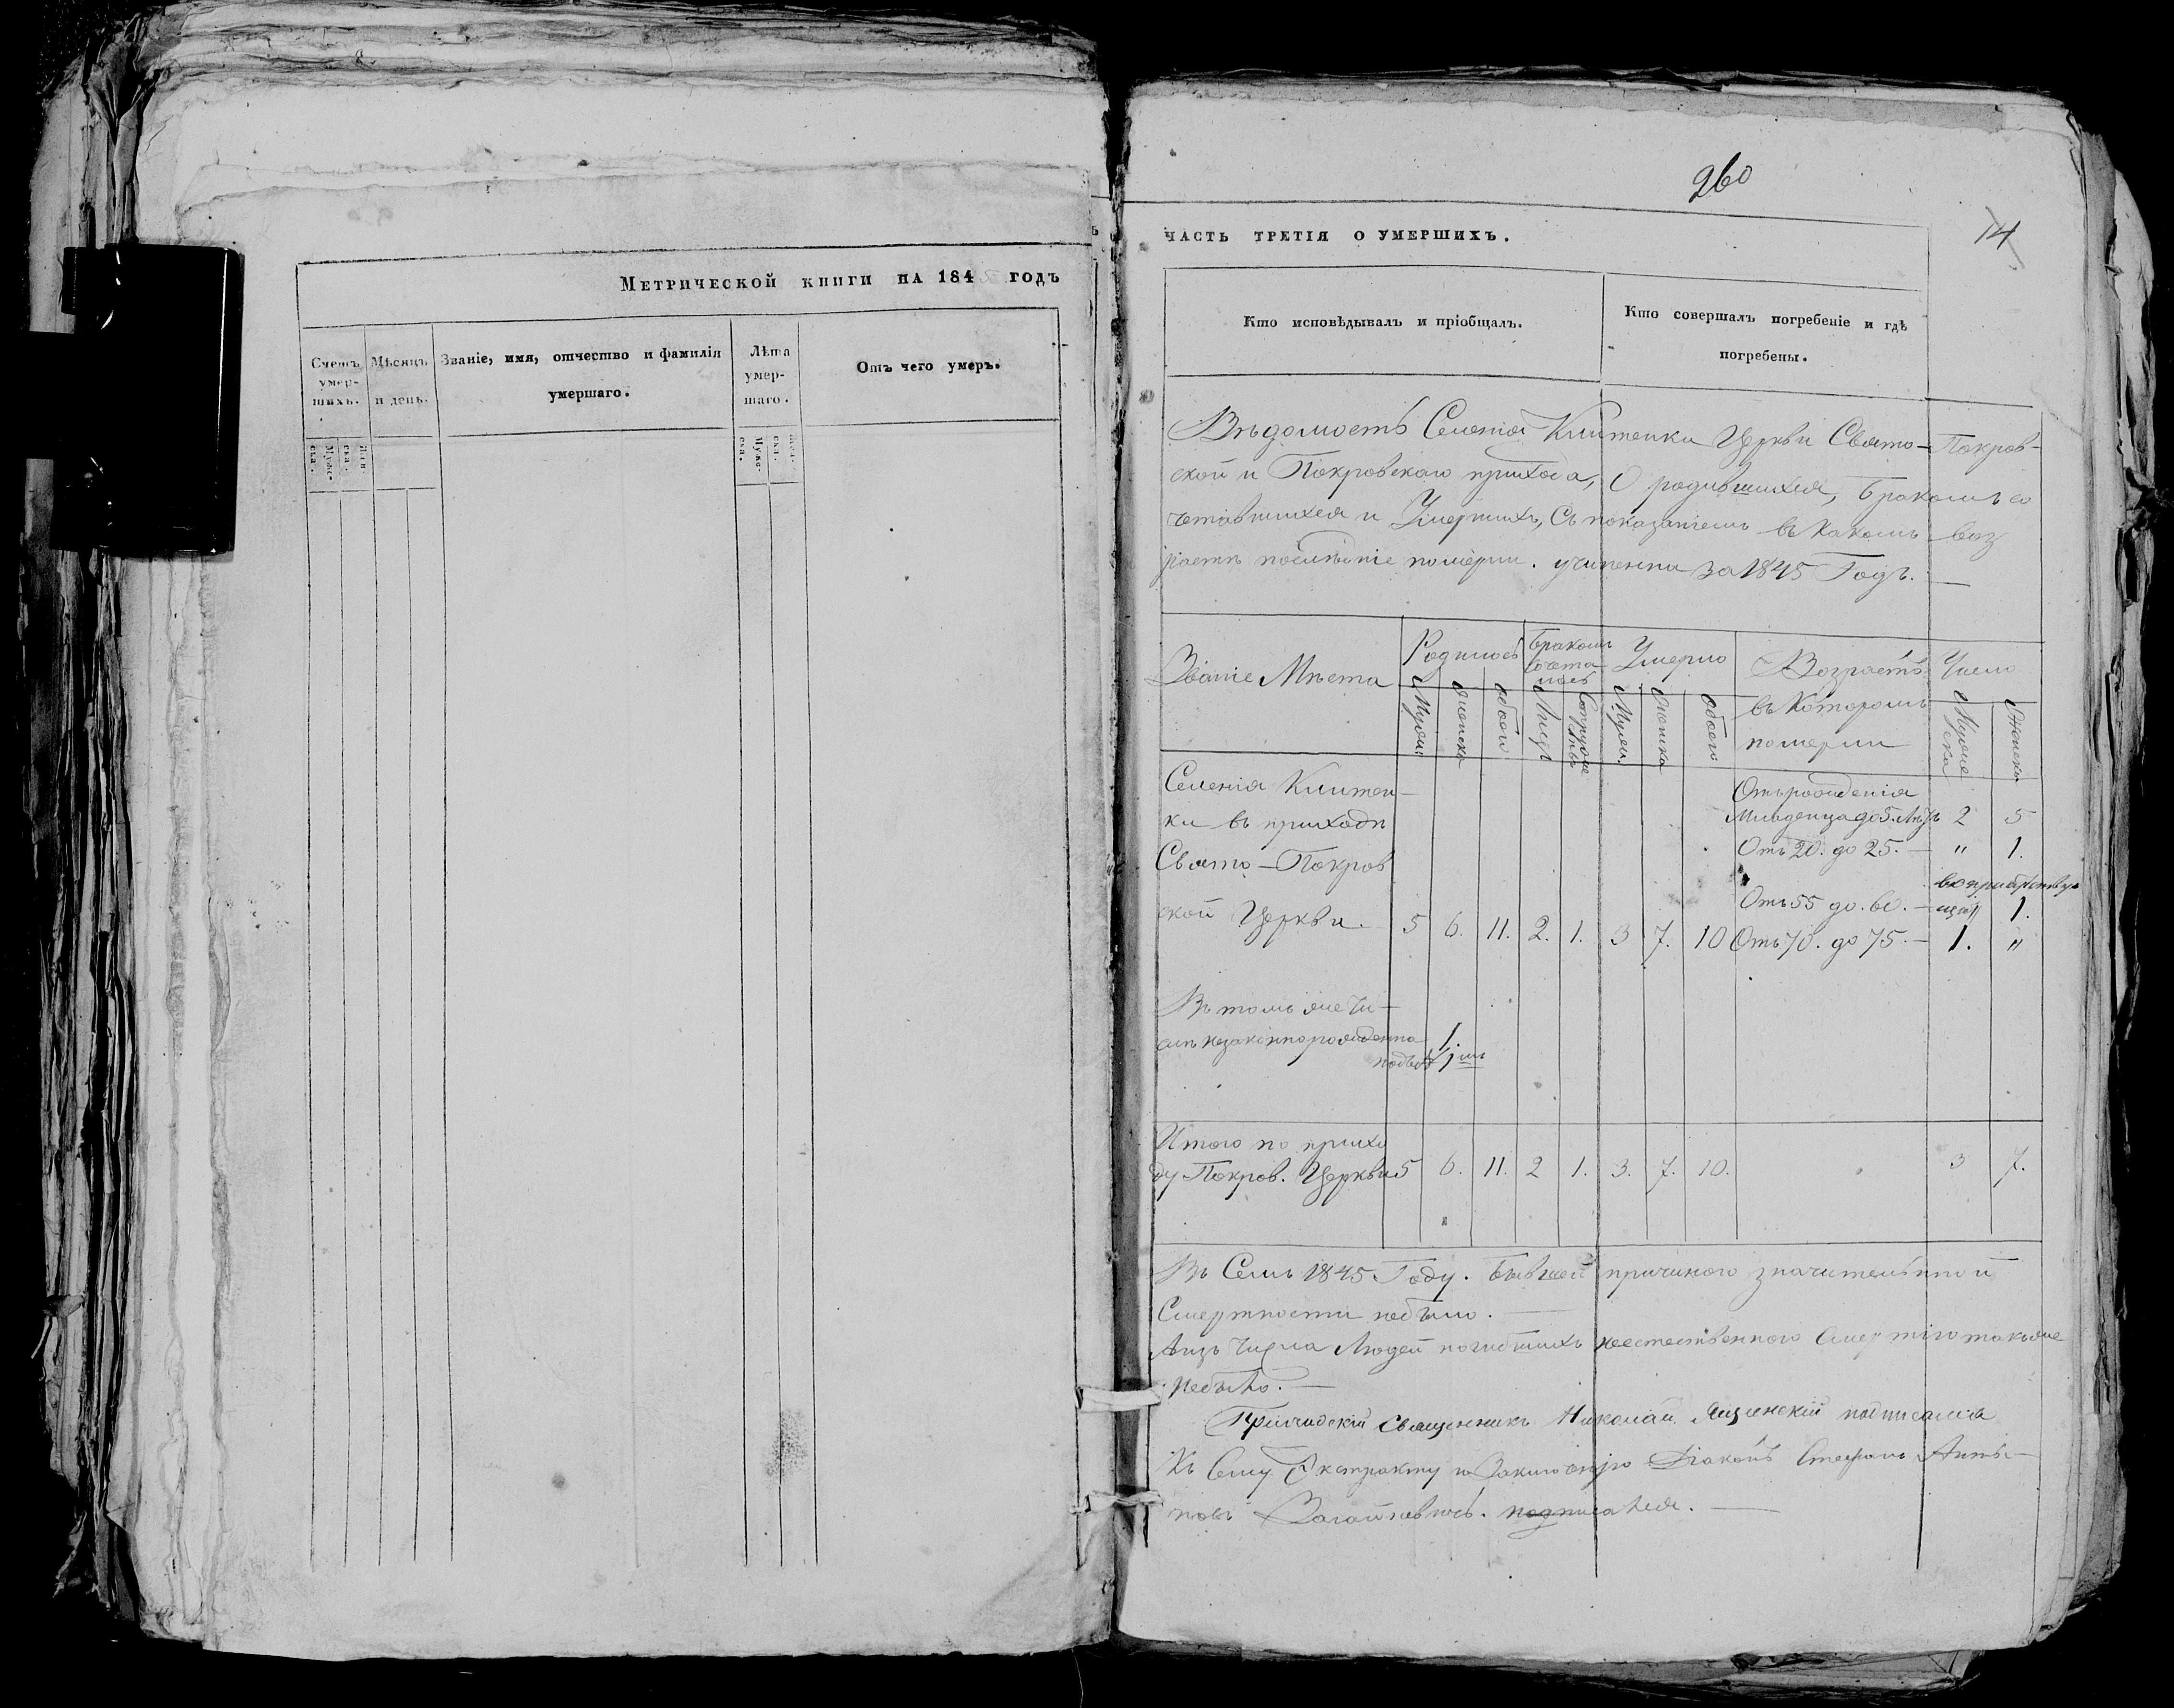 Метрической книги на 1845 годъ
Счетъ умер-шихъ.
Мѣсяцъ и день.
Званіе, имя, отчество и фамилія умершаго.
Лѣта умер-шаго.
Отъ чего умеръ.
Муже-ска.
Жен-ска.
Муже-ска.
Жен-ска.
260
14
ЧАСТЬ ТРЕТІЯ О УМЕРШИХЪ.
Кто исповѣдывалъ и пріобщалъ.
Кто совершалъ погребеніе и гдѣ
погребены.
Вѣдомость Селенія Клитенки Церкви Свято-Покров-
ской и Покровскаго прихода, О родившихся, Бракомъ со
четавшихся и Умершихъ, Съ показаніемъ въ какомъ воз
растѣ послѣдніе померли. учиненна за 1845 Годъ.
Званіе Мѣста
Родилось
Бракомъ Сочета-лось
Умерло
Возрастъ
Число
въ Которомъ
померли
Муж.
Женска
обоего
Лицъ
Супруже
Муж.
Женска
Обоего
Муже ска
Женска
Селенія Клитен-
ки въ приходѣ
Свято-Покров
ской Церкви. 5 6. 11. 2. 1. 3 7. 10
Отърожденія
Младенца до 5. лѣтъ 2 5
Отъ 20. до 25. — " 1.
Отъ 55 до. 60. — 1.
Отъ 70. до 75. — 1. "
Въ томъ же Чи-
слѣ незаконнорожденна 1.
Итого по прихо
ду Покров. Церкви 5 6. 11. 2 1. 3. 7. 10. 3 7.
Въ Семъ 1845 Году. Бывшей причиною значительной
Смертности небыло. —
Аизъ Числа Людей погибшихъ неестественною Смертію такъже
Небыло. —
Священникъ Николай подписался
Къ Сему Екстракту и Заключенію Діаконъ Стефанъ Анто-
новъ подписался. —